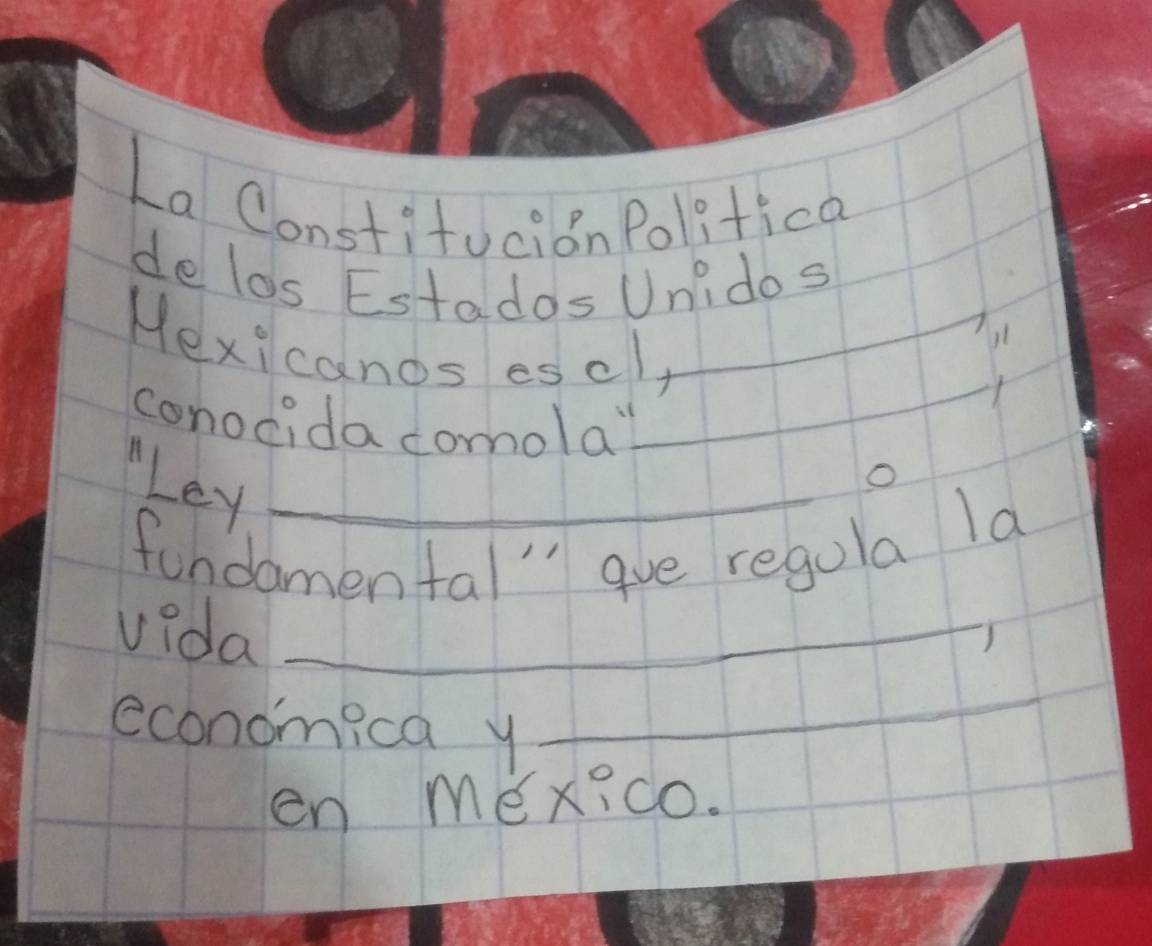 La Constitución Politica
de los Estados Unidos
Mexicanos es el, __________,
conocida como la "__________",
"Ley __________ o
fundamental" que regula la
vida __________,
económica y __________
en méxico.